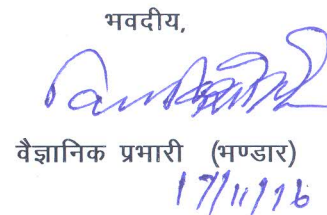 भवदीय,
वैज्ञानिक प्रभारी (भण्डार)
17/11/16